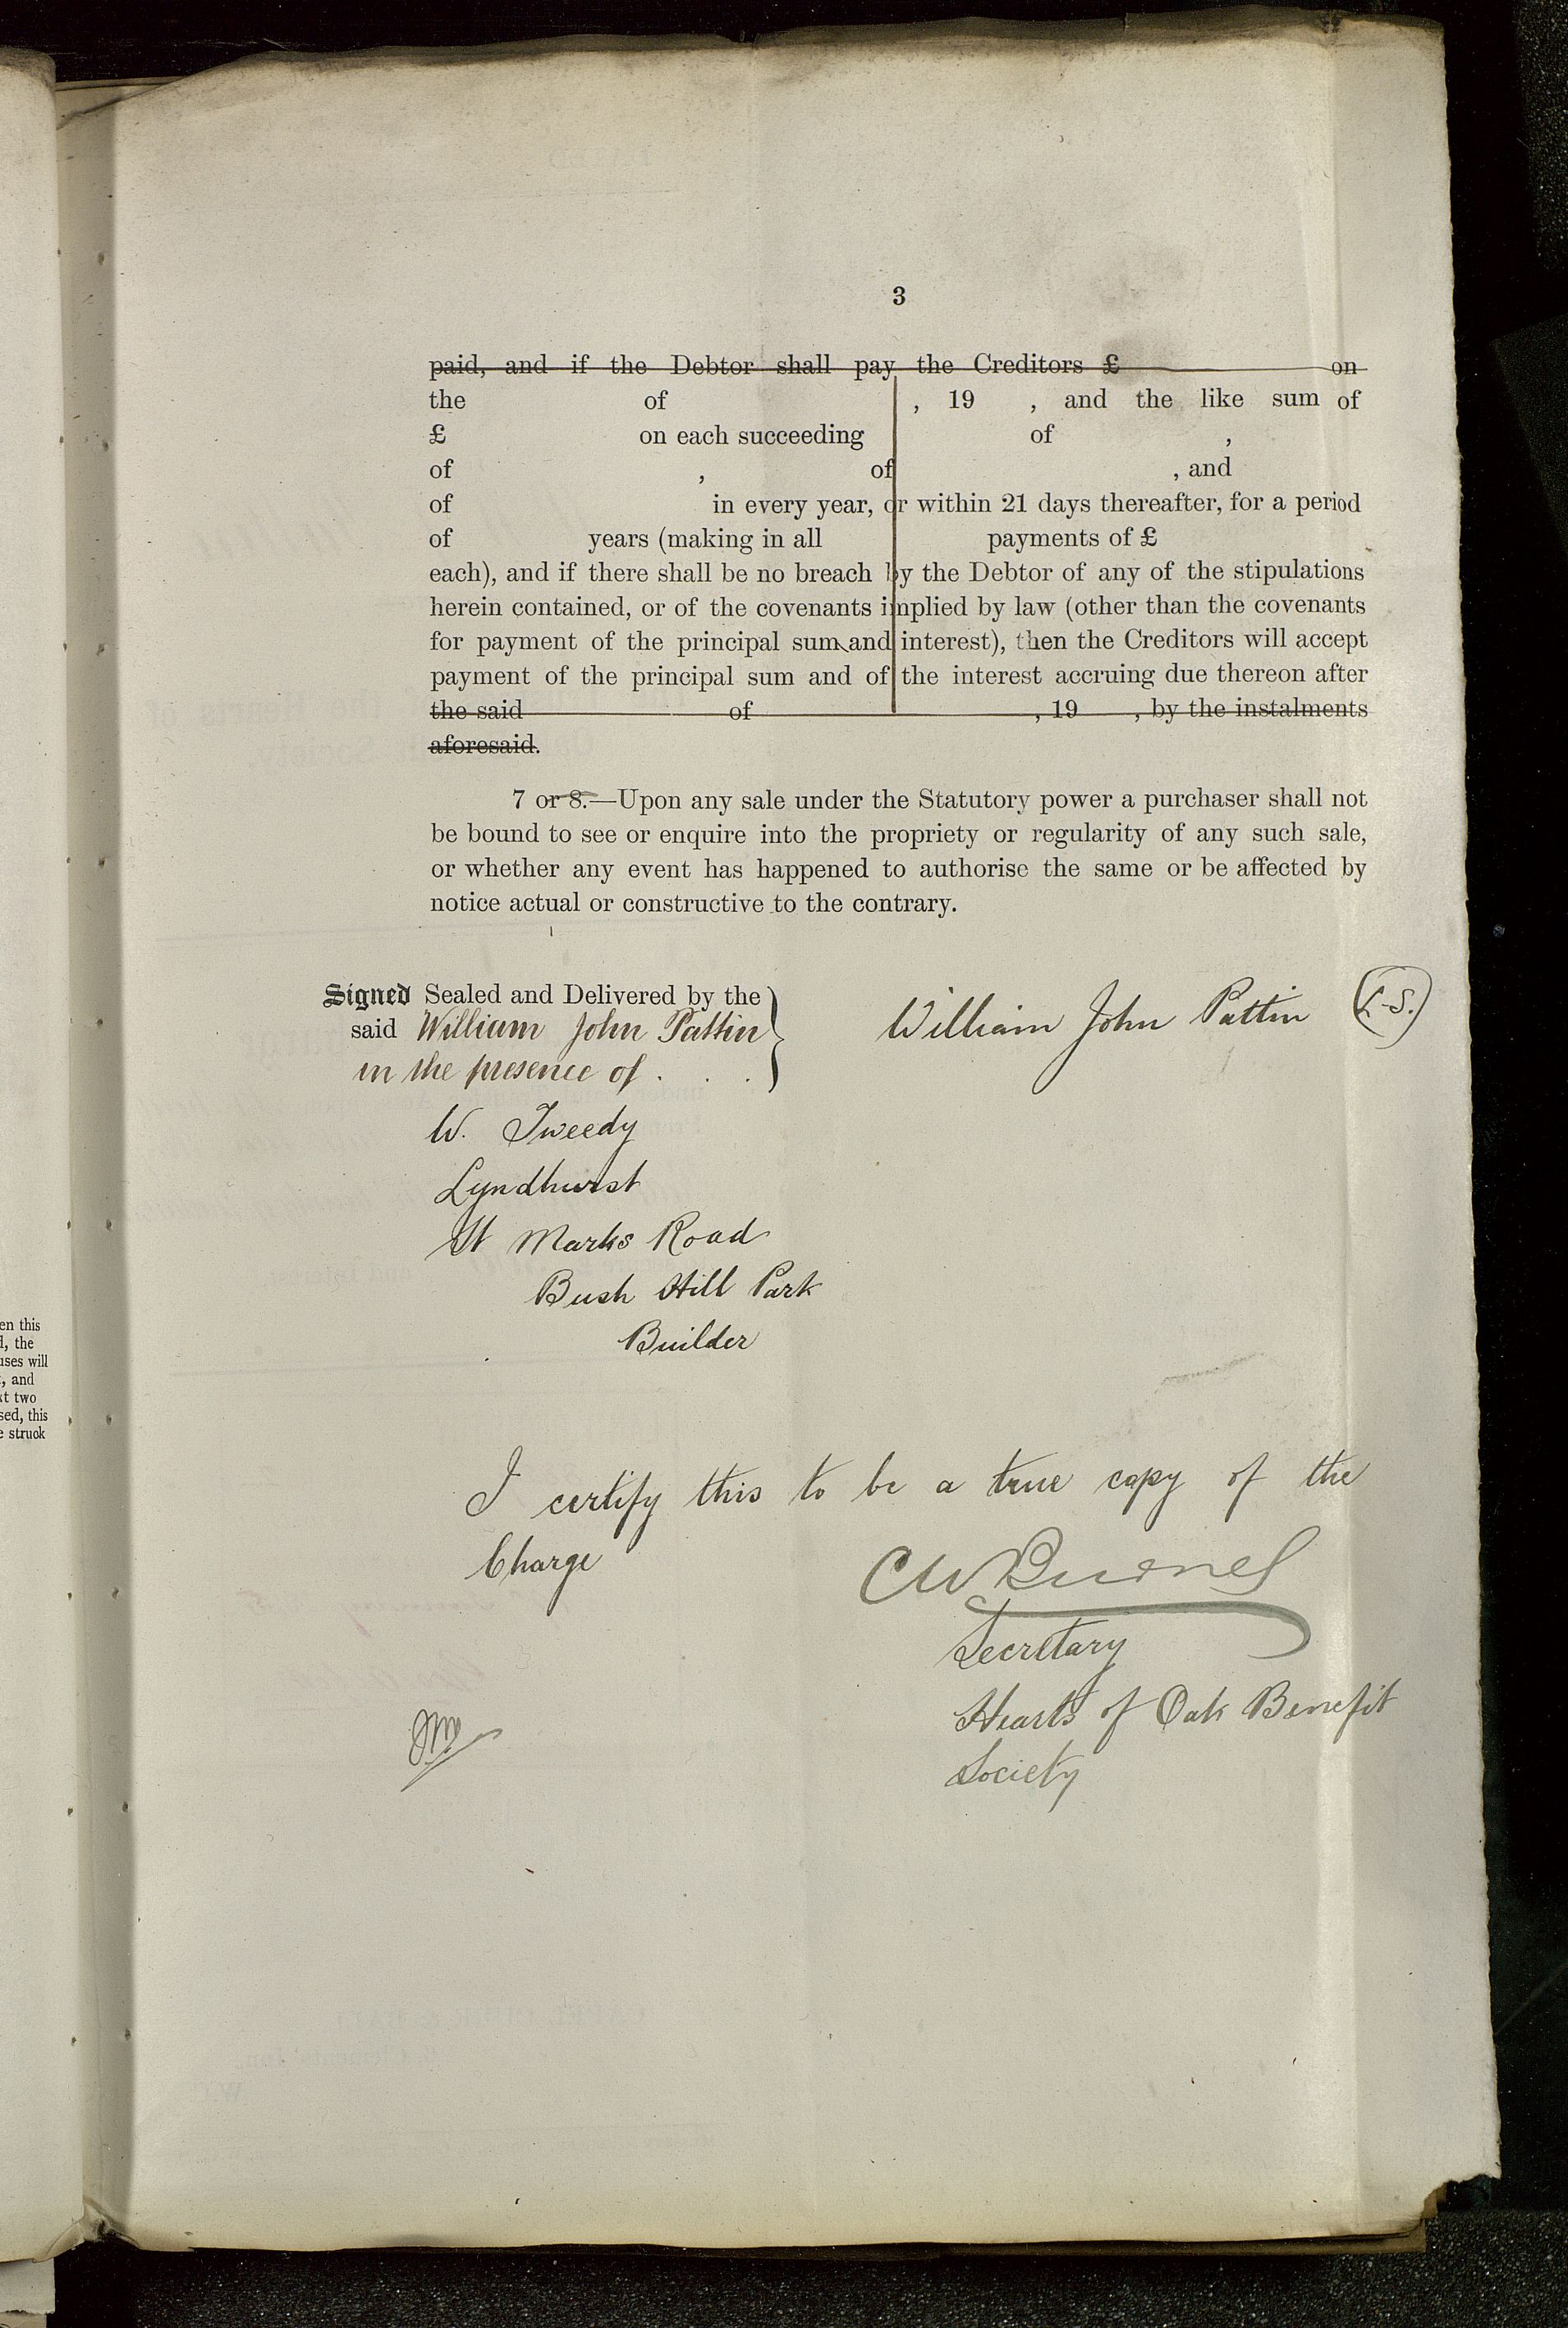 3
paid, and if the Debtor shall pay the Creditors £ on
the of , 19 , and the like sum of
£ on each succeeding of ,
of , of , and
of in every year, or within 21 days thereafter, for a period
of years (making in all payments of £
each), and if there shall be no breach by the Debtor of any of the stipulations
herein contained, or of the covenants implied by law (other than the covenants
for payment of the principal sum and interest), then the Creditors will accept
payment of the principal sum and of the interest accruing due thereon after
the said of , 19 , by the instalments
aforesaid.
7 or 8.—Upon any sale under the Statutory power a purchaser shall not
be bound to see or enquire into the propriety or regularity of any such sale,
or whether any event has happened to authorise the same or be affected by
notice actual or constructive to the contrary.
Signed Sealed and Delivered by the
said William John Pattin
in the presence of . . .
William John Pattin (L.S.)
W. Tweedy
Lyndhurst
St Marks Road
Bush Hill Park
Builder
I certify this to be a true copy of the
Charge
Secretary
Hearts of Oak Benefit
Society
en this
, the
uses will
, and
xt two
sed, this
e struck